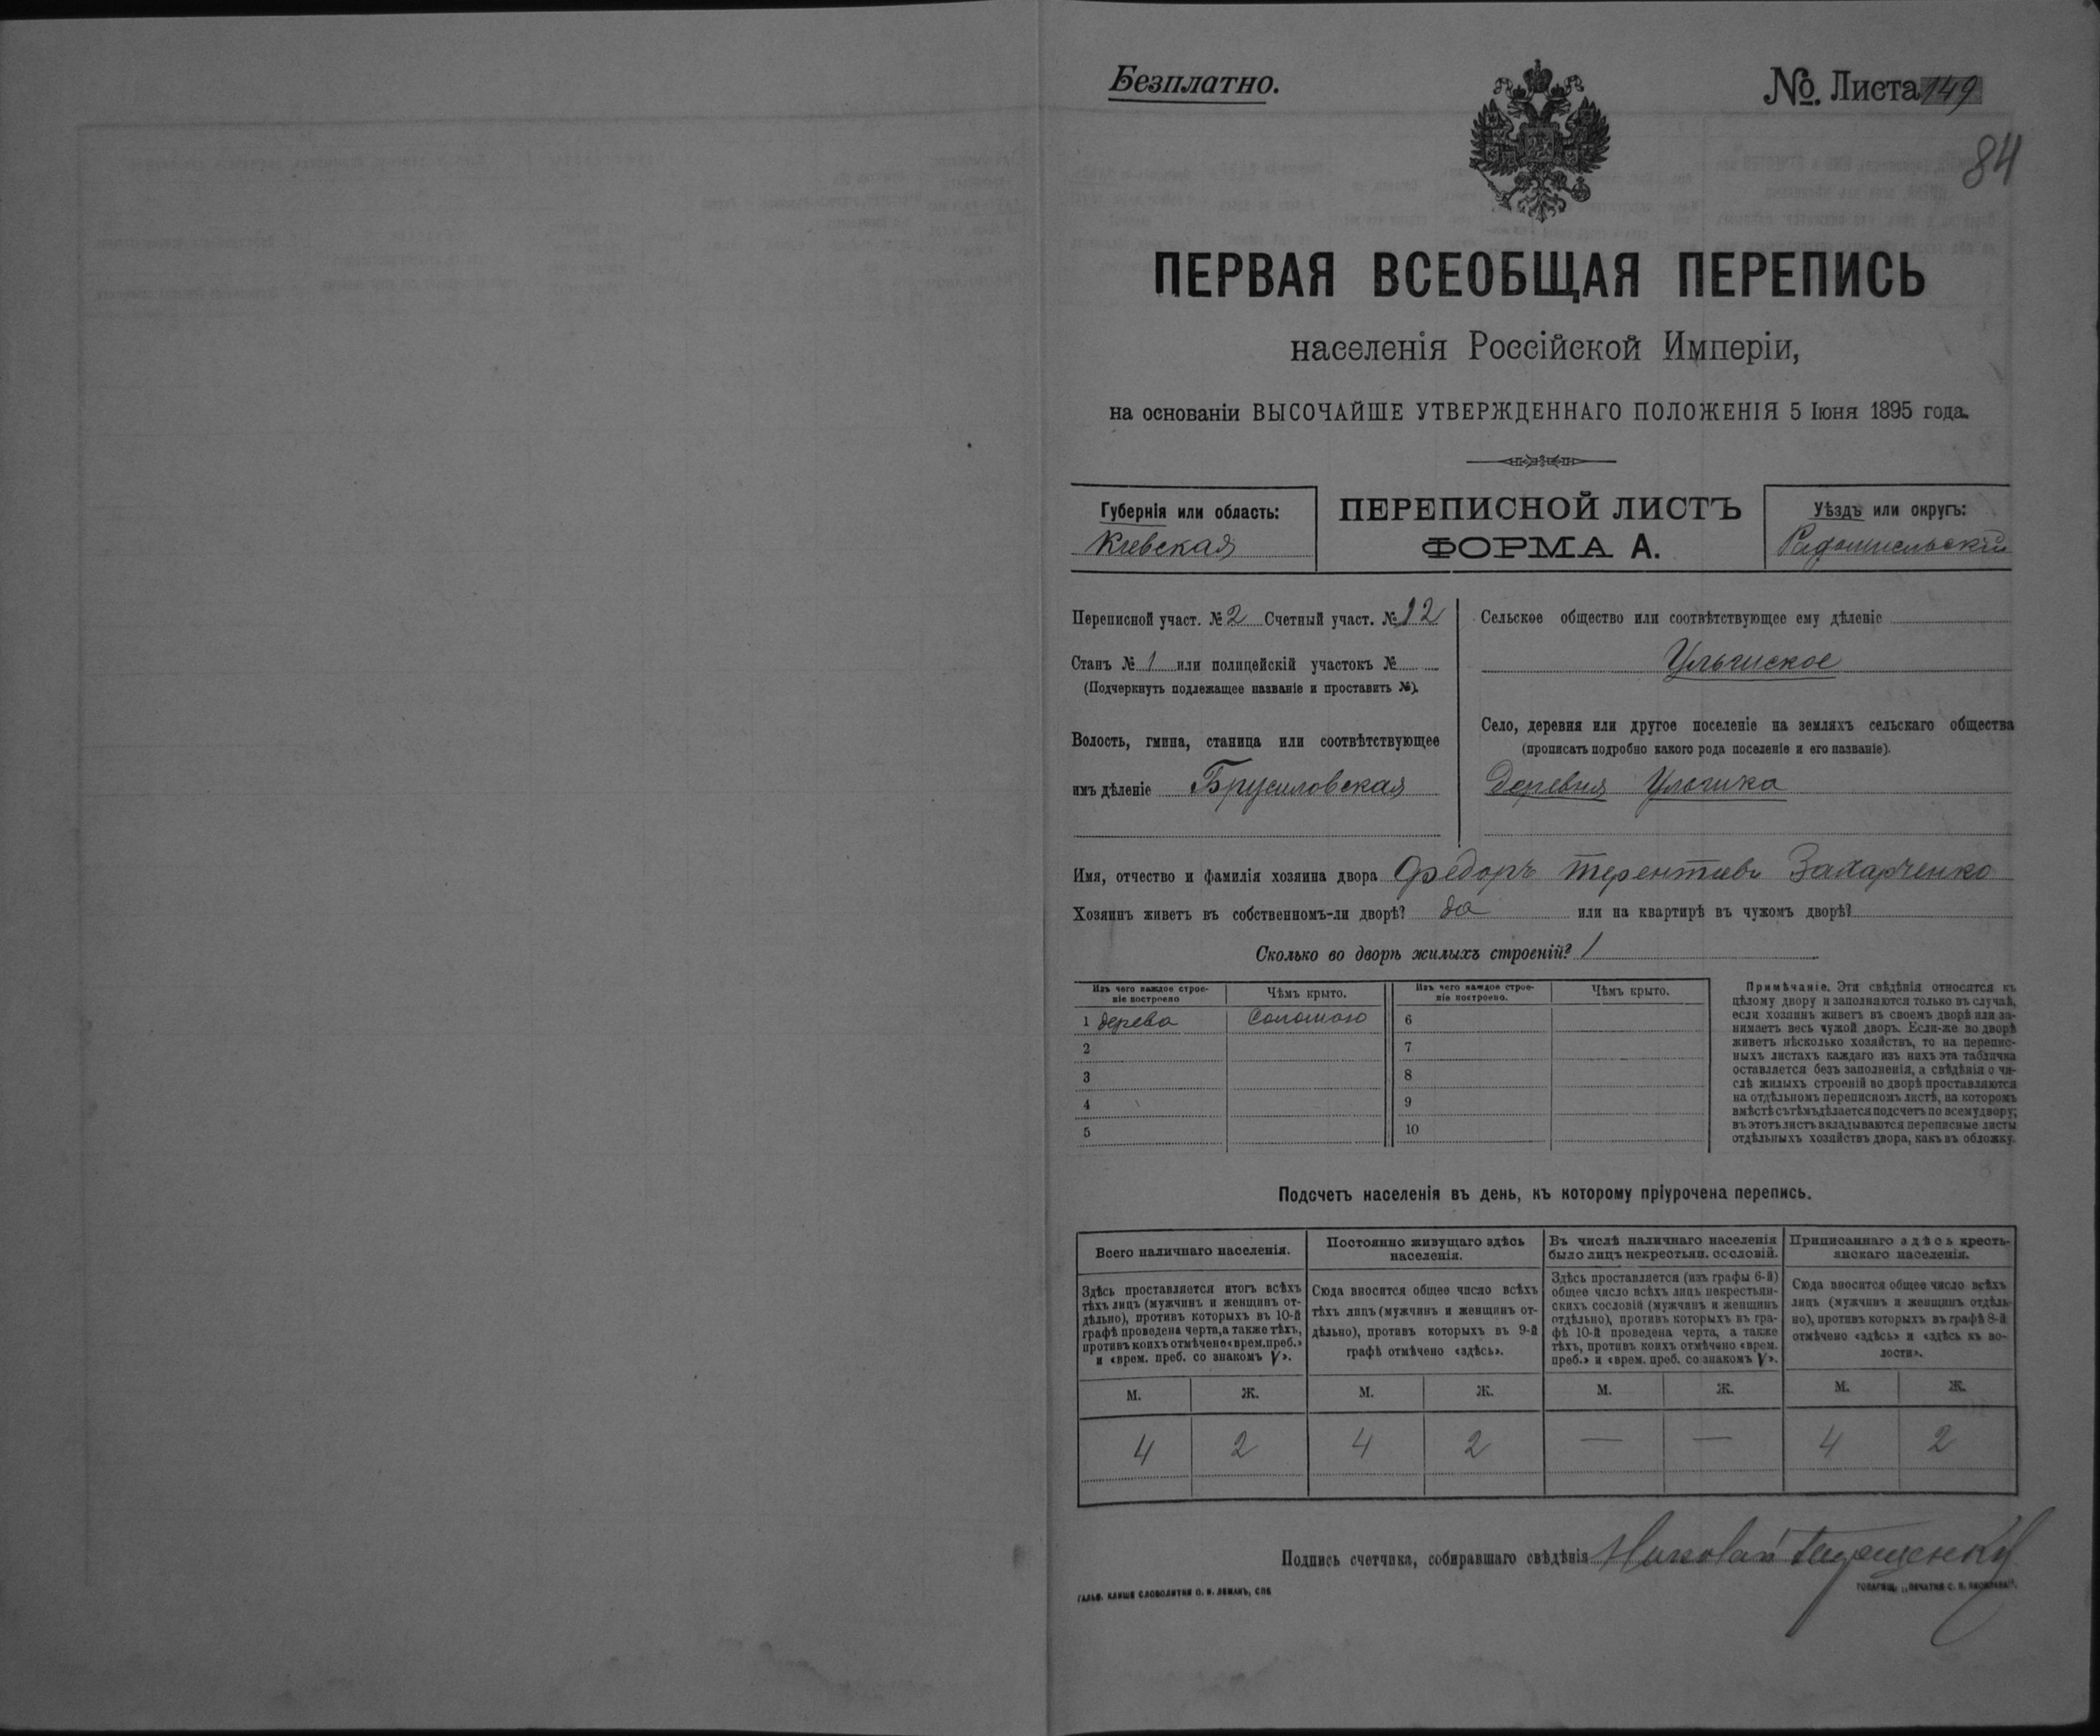 Безплатно.
№. Листа 149
84
ПЕРВАЯ ВСЕОБЩАЯ ПЕРЕПИСЬ
населенія Россійской Имперіи,
на основаніи ВЫСОЧАЙШЕ УТВЕРЖДЕННАГО ПОЛОЖЕНІЯ 5 Іюня 1895 года.
Губернія или область:
Кіевская
ПЕРЕПИСНОЙ ЛИСТЪ
ФОРМА А.
Уѣздъ или округъ:
Радомысльскій
Переписной участ. № 2 Счетный участ. № 12
Станъ № 1 или полицейскій участокъ №
(Подчеркнуть подлежащее названіе и проставить №).
Волость, гмина, станица или соотвѣтствующее
имъ дѣленіе Брусиловская
Сельское общество или соотвѣтствующее ему дѣленіе
Ульшское
Село, деревня или другое поселеніе на земляхъ сельскаго общества
(прописать подробно какого рода поселеніе и его названіе).
Деревня Ульшка
Имя, отчество и фамилія хозяина двора Федоръ Терентіевъ Захарченко
Хозяинъ живетъ въ собственномъ-ли дворѣ? да или на квартирѣ въ чужомъ дворѣ?
Сколько во дворѣ жилыхъ строеній? 1
Изъ чего каждое строе-
ніе построено
Чѣмъ крыто.
Изъ чего каждое строе-
ніе построено.
Чѣмъ крыто.
1 дерева Соломою 6
2 7
3 8
4 9
5 10
Примѣчаніе. Эти свѣдѣнія относятся къ
цѣлому двору и заполняются только въ случаѣ,
если хозяинъ живетъ въ своемъ дворѣ или за-
нимаетъ весь чужой дворъ. Если-же во дворѣ
живетъ нѣсколько хозяйствъ, то на перепис-
ныхъ листахъ каждаго изъ нихъ эта табличка
оставляется безъ заполненія, а свѣдѣнія о чи-
слѣ жилыхъ строеній во дворѣ проставляются
на отдѣльномъ переписномъ листѣ, на которомъ
вмѣстѣ съ тѣмъ дѣлается подсчетъ по всему двору;
въ этотъ листъ вкладываются переписные листы
отдѣльныхъ хозяйствъ двора, какъ въ обложку.
Подсчетъ населенія въ день, къ которому пріурочена перепись.
Всего наличнаго населенія.
Здѣсь проставляется итогъ всѣхъ
тѣхъ лицъ (мужчинъ и женщинъ от-
дѣльно), противъ которыхъ въ 10-й
графѣ проведена черта, а также тѣхъ,
противъ коихъ отмѣчено «врем. преб.»
и «врем. преб. со знакомъ V».
Постоянно живущаго здѣсь
населенія.
Сюда вносится общее число всѣхъ
тѣхъ лицъ (мужчинъ и женщинъ от-
дѣльно), противъ которыхъ въ 9-й
графѣ отмѣчено «здѣсь».
Въ числѣ наличнаго населенія
было лицъ некрестьян. сословій.
Здѣсь проставляется (изъ графы 6-й)
общее число всѣхъ лицъ некрестьян-
скихъ сословій (мужчинъ и женщинъ
отдѣльно), противъ которыхъ въ гра-
фѣ 10-й проведена черта, а также
тѣхъ, противъ коихъ отмѣчено «врем.
преб.» и «врем. преб. со знакомъ V».
Приписаннаго здѣсь кресть-
янскаго населенія.
Сюда вносится общее число всѣхъ
лицъ (мужчинъ и женщинъ отдѣль-
но), противъ которыхъ въ графѣ 8-й
отмѣчено «здѣсь» и «здѣсь къ во-
лости».
М. Ж. М. Ж. М. Ж. М. Ж.
4 2 4 2 — — 4 2
Подпись счетчика, собиравшаго свѣдѣнія Николай
ГАЛЬВ. КЛИШЕ СЛОВОЛИТНИ О. И. ЛЕМАНЪ, СПБ
ТОВАРИЩ. „ПЕЧАТНЯ С. П. ЯКОВЛЕВА".